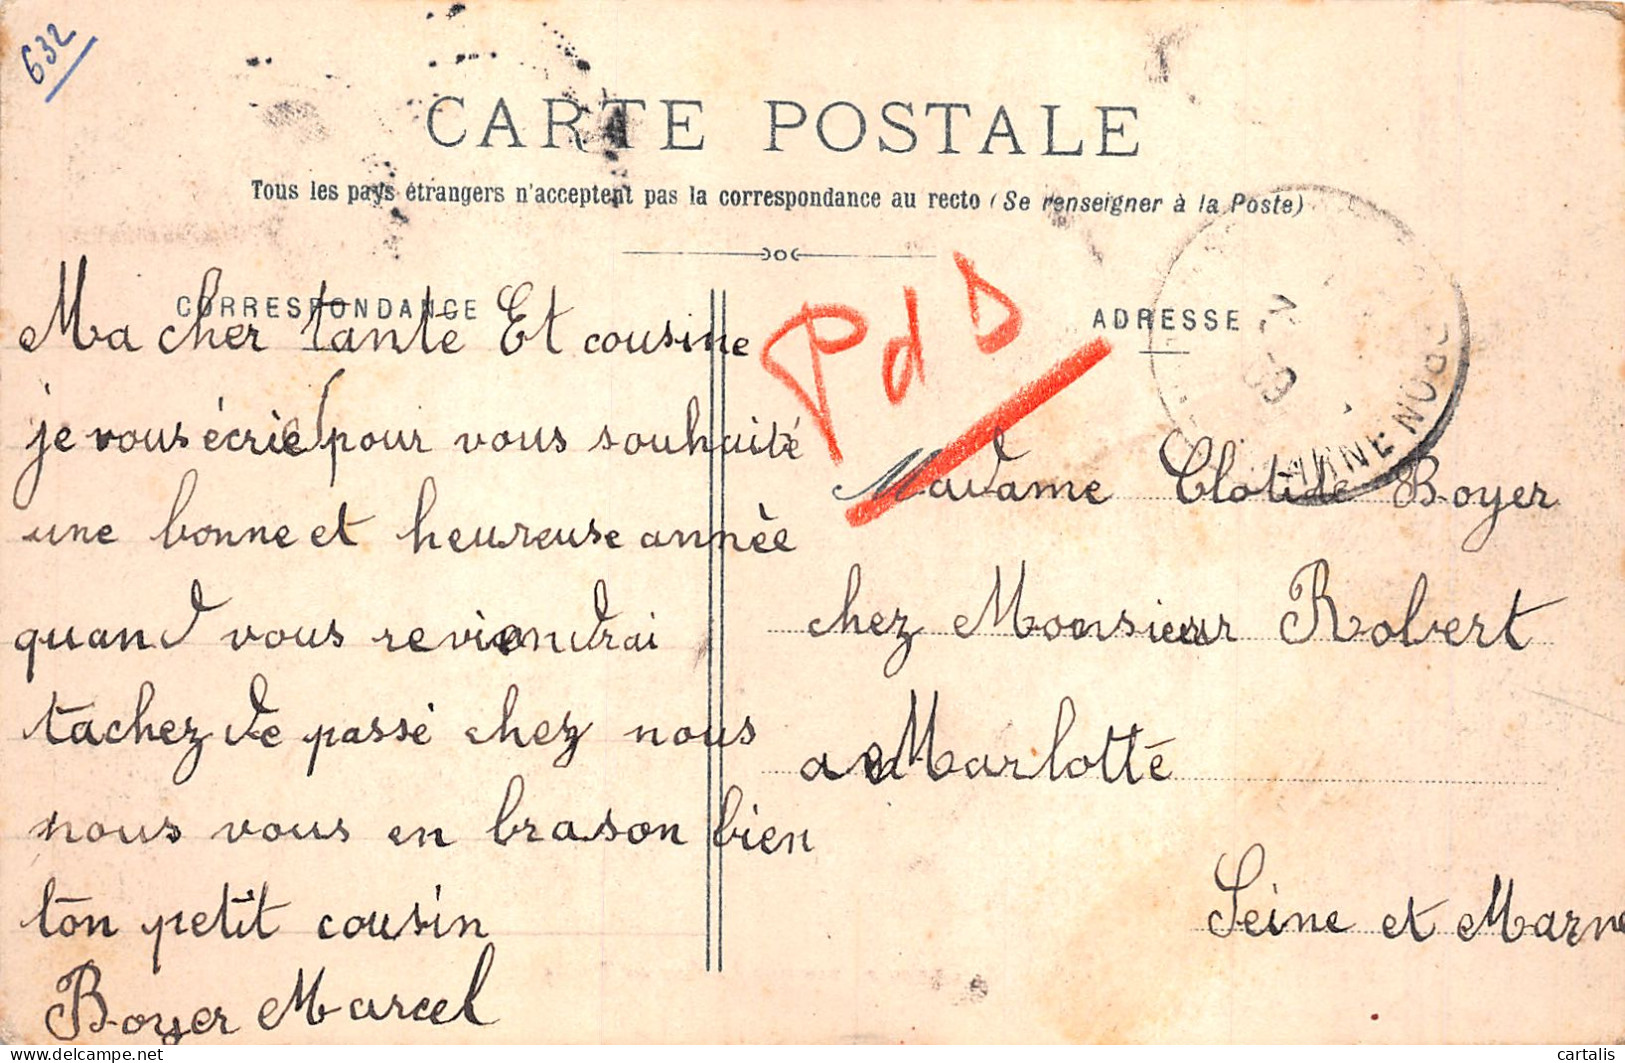 632
CARTE POSTALE
Tous les pays étrangers n'acceptent pas la correspondance au recto (Se renseigner à la Poste)
CORRESPONDANCE
Ma cher tante Et cousine
je vous écrie pour vous souhaité
une bonne et heureuse annèe
quand vous reviendrai
tachez de passé chez nous
nous vous en brason bien
ton petit cousin
Boyer Marcel
PdD
ADRESSE
Madame Clotilde Boyer
chez Monsieur Robert
a Marlotte
Seine et Marne
delcampe.net
cartalis